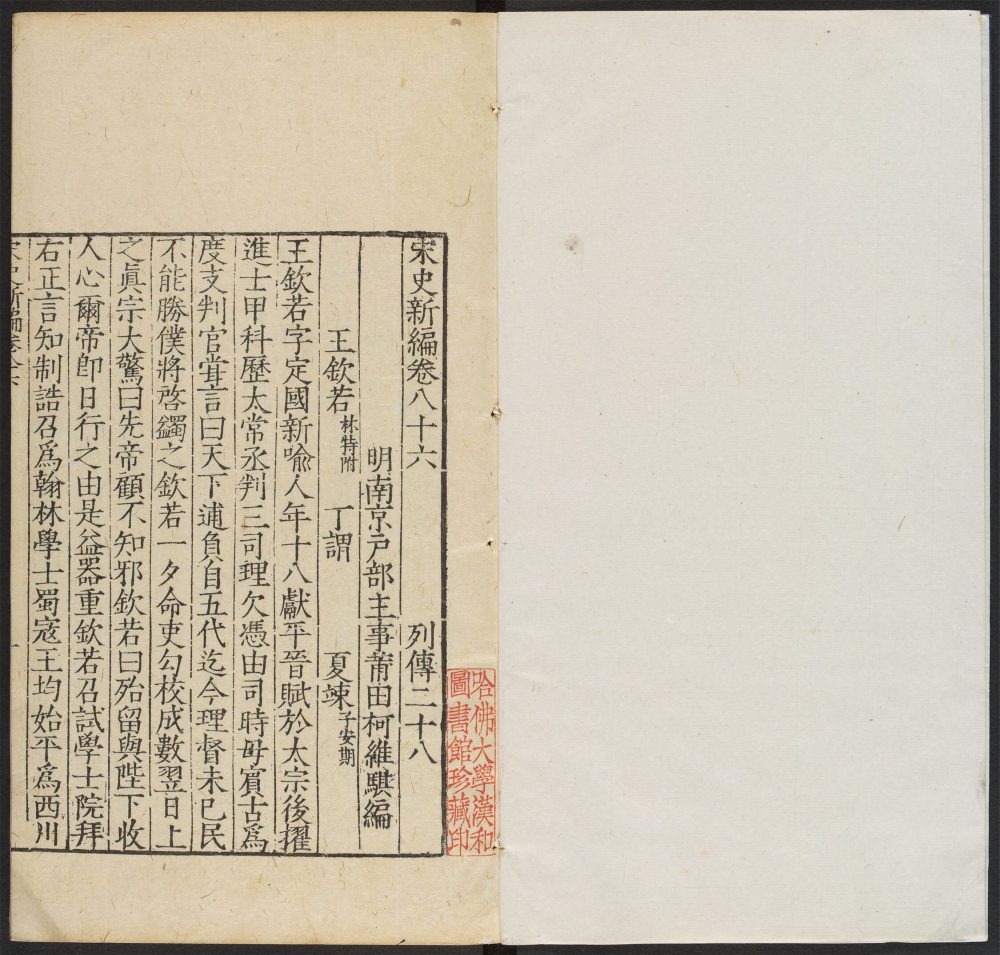 宋史新編卷八十六 列傳二十八
明南京戸部主事莆田柯維騏編
王欽若林特附 丁謂 夏竦子安期
王欽若字定國新喻人年十八獻平晉賦於太宗後擢
進士甲科歷太常丞判三司理欠憑由司時毋賓古爲
度支判官嘗言曰天下逋負自五代迄今理督未已民
不能勝僕將啓蠲之欽若一夕命吏勾校成數翌日上
之眞宗大驚曰先帝顧不知邪欽若曰殆留與陛下收
人心爾帝卽日行之由是益器重欽若召試學士院拜
右正言知制誥召爲翰林學士蜀寇王均始平爲西川
宋史新編卷八六 一
哈佛大學漢和
圖書館珍藏印